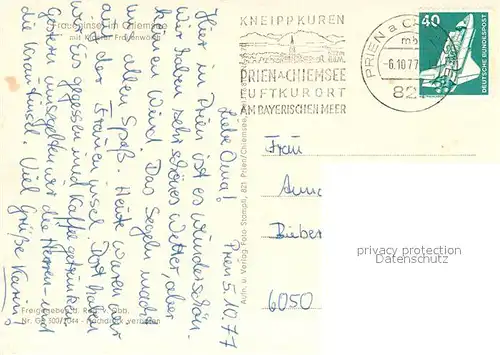 Fraueninsel im Chiemsee
mit Kloster Frauenwörth
Prien 5.10.77
Liebe Oma!
Hier in Prien ist es wunderschön.
Wir haben sehr schönes Wetter, aber
keinen Wind. Das Segeln macht
uns allen Spaß. Heute waren wir
auf der Fraueninsel. Dort haben
wir Eis gegessen und Kaffee getrunken.
Gestern umsegelten wir die Herren- und
die Krautinsel. Viele
Grüße Karin!
Freigegeben d. Reg. v. Obb.
Nr. GS 300/7044 - Nachdruck verboten
Aufn. u. Verlag Foto Stampfl, 821 Prien/Chiemsee,
KNEIPPKUREN
PRIEN A CHIEMSEE
LUFTKURORT
AM BAYERISCHEN MEER
PRIEN a C
-6.10.77
821
40
DEUTSCHE BUNDESPOST
Frau
Anne
Bieber
6050
privacy protection